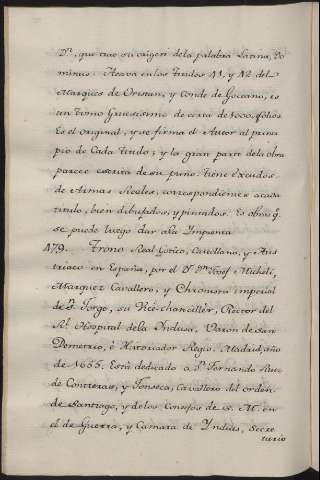 Dⁿ, que trae su origen dela palabra Latina, Do
minus. Acava en los titulos 11, y 12 del
Marques de Oristan, y Conde de Goceano, es
un tomo Gruesisimo de cerca de 1000 folios
Es el original, y se firma el Autor al princi
pio de Cada titulo; y la gran parte dela obra
parece escrita de su puño: tiene Escudos
de Armas Reales, correspondientes acada
titulo, bien dibujados, y pintados. Es obra q.
se puede luego dar ala Ymprenta
479. Trono Real Gotico, Castellano, y Aus
triaco en España, por el Dʳ Dⁿ Josef Micheli,
Marquez Cavallero, y Chronista imperial
de Sⁿ Jorge, su Vice-chanciller, Rector del
Rˡ Hospital dela Yndusa, Varon de San
Demetrio, è Historiador Regio. Madrid, año
de 1655. Está dedicado a Dⁿ Fernando Ruiz
de Contreras, y Fonseca, Cavallero del orden
de Santiago, y delos Consejos de S. M. en
el de Guerra, y Camara de Yndias, Secre
tario